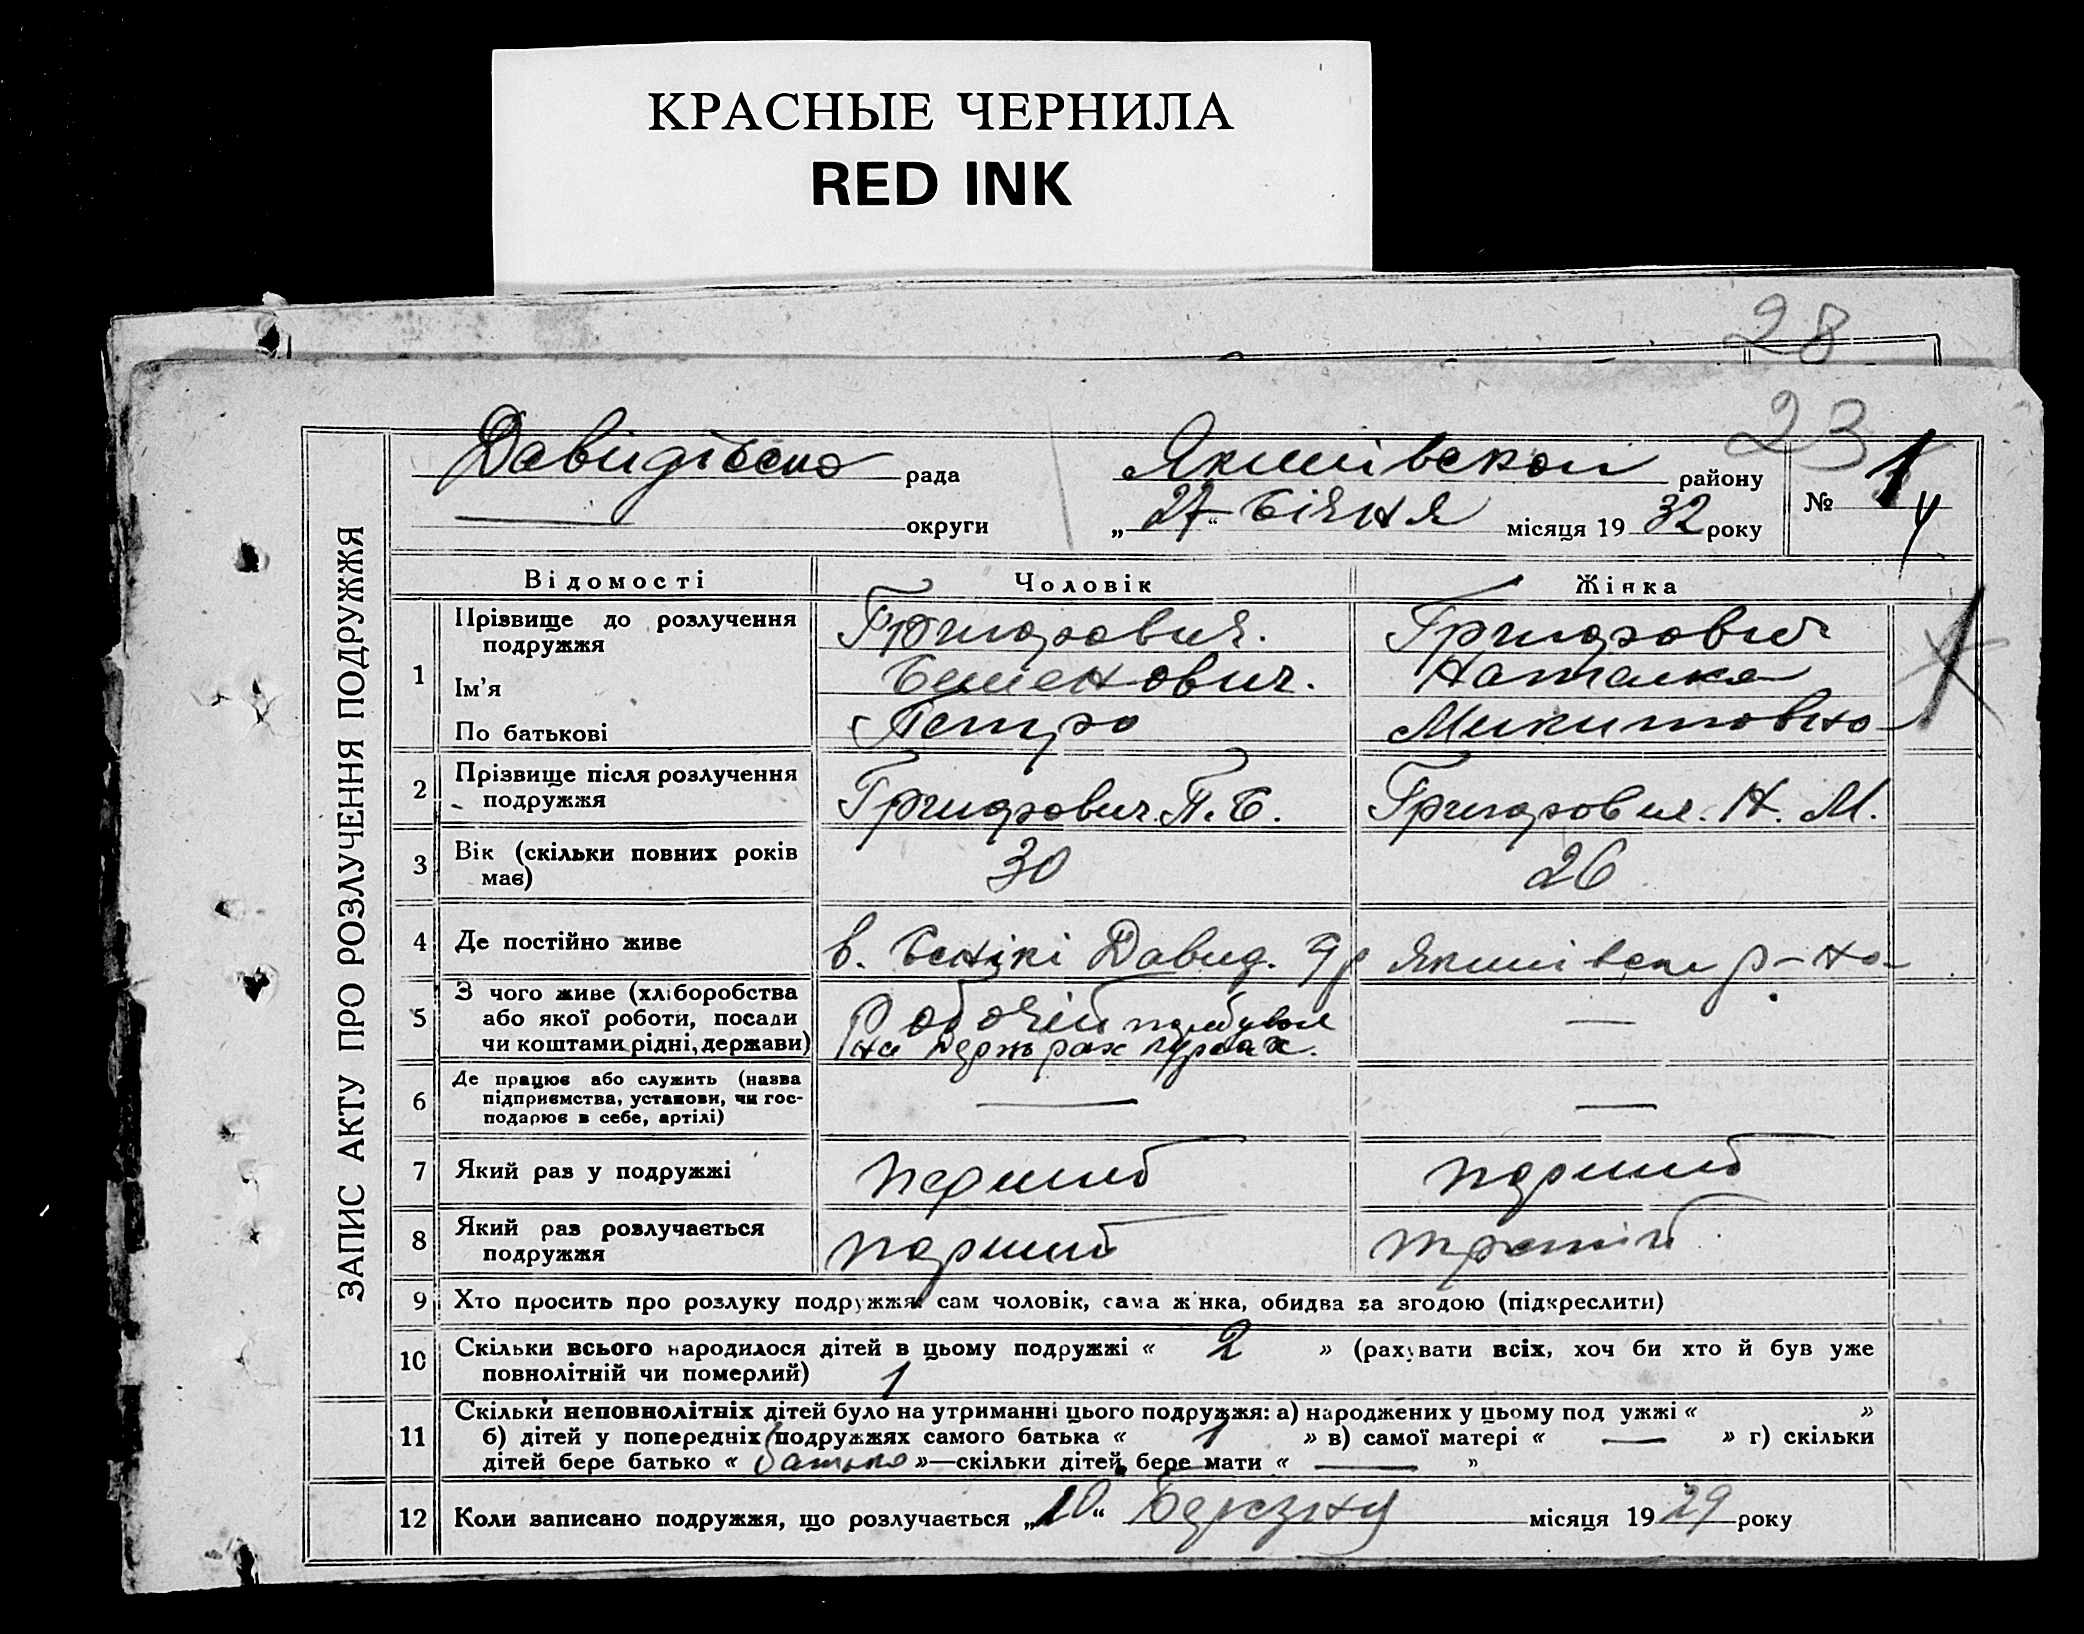 КРАСНЫЕ ЧЕРНИЛА
RED INK
28
23
ЗАПИС АКТУ ПРО РОЗЛУЧЕННЯ ПОДРУЖЖЯ
рада Якимівской району № 1
округи „27“ Січня місяця 1932 року
Відомості Чоловік Жінка
1 Прізвище до розлучення подружжя Григорович. Григорович
Ім'я Семенович. Наталка
По батькові Петро Микитовна
2 Прізвище після розлучення
подружжя Григорович. П. С. Григорович. Н. М.
3 Вік (скільки повних років
має) 30 26
4 Де постійно живе в. Давид. Якимівськ р-на
5 З чого живе (хліборобства
або якої роботи, посади Робочій
чи коштами рідні, держави) на курсах.
6 Де працює або служить (назва
підприємства, установи, чи гос-
подарює в себе, артілі) — —
7 Який раз у подружжі перший перший
8 Який раз розлучається
подружжя перший третій
9 Хто просить про розлуку подружжя: сам чоловік, сама жінка, обидва за згодою (підкреслити)
10 Скільки всього народилося дітей в цьому подружжі « 2 » (рахувати всіх, хоч би хто й був уже
повнолітній чи померлий) 1
11 Скільки неповнолітніх дітей було на утриманні цього подружжя: а) народжених у цьому подружжі « »
б) дітей у попередніх подружжях самого батька « 1 » в) самої матері « — » г) скільки
дітей бере батько « батько »—скільки дітей бере мати « — »
12 Коли записано подружжя, що розлучається „10“ Березня місяця 1929 року